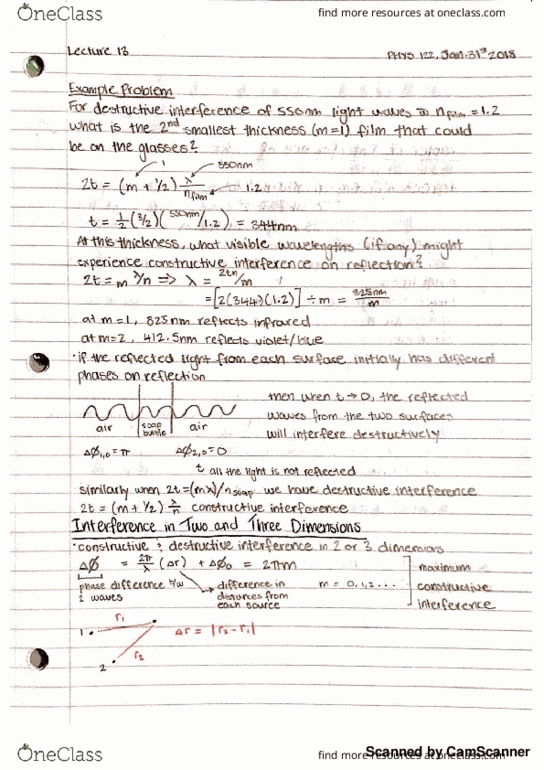 OneClass
find more resources at oneclass.com
Lecture 13
PHYS 122, Jan. 31st 2018
Example Problem
For destructive interference of 550nm light waves & nfilm = 1.2
what is the 2nd smallest thickness (m=1) film that could
be on the glasses?
1 550nm
2t = (m + 1/2) λ/nfilm 1.2
t = 1/2 (3/2)(550nm/1.2) = 344nm
At this thickness, what visible wavelengths (if any) might
experience constructive interference on reflection?
2t = m λ/n => λ = 2tn/m
= [2(344)(1.2)] ÷ m = 825nm/m
at m=1, 825nm reflects infrared
at m=2, 412.5nm reflects violet/blue
· if the reflected light from each surface initially has different
phases on reflection
then when t → 0, the reflected
waves from the two surfaces
will interfere destructively
air soap bubble air
Δϕ1,0 = π Δϕ2,0 = 0
t all the light is not reflected
similarly when 2t = (mλ)/nsoap we have destructive interference
2t = (m + 1/2) λ/n constructive interference
Interference in Two and Three Dimensions
· constructive & destructive interference in 2 or 3 dimensions
Δϕ = 2π/λ (Δr) + Δϕ0 = 2πm
phase difference b/w 2 waves
difference in distances from each source
m = 0, 1, 2...
maximum constructive interference
1 r1
Δr = |r2 - r1|
2 r2
OneClass
find more resources at oneclass.com
Scanned by CamScanner